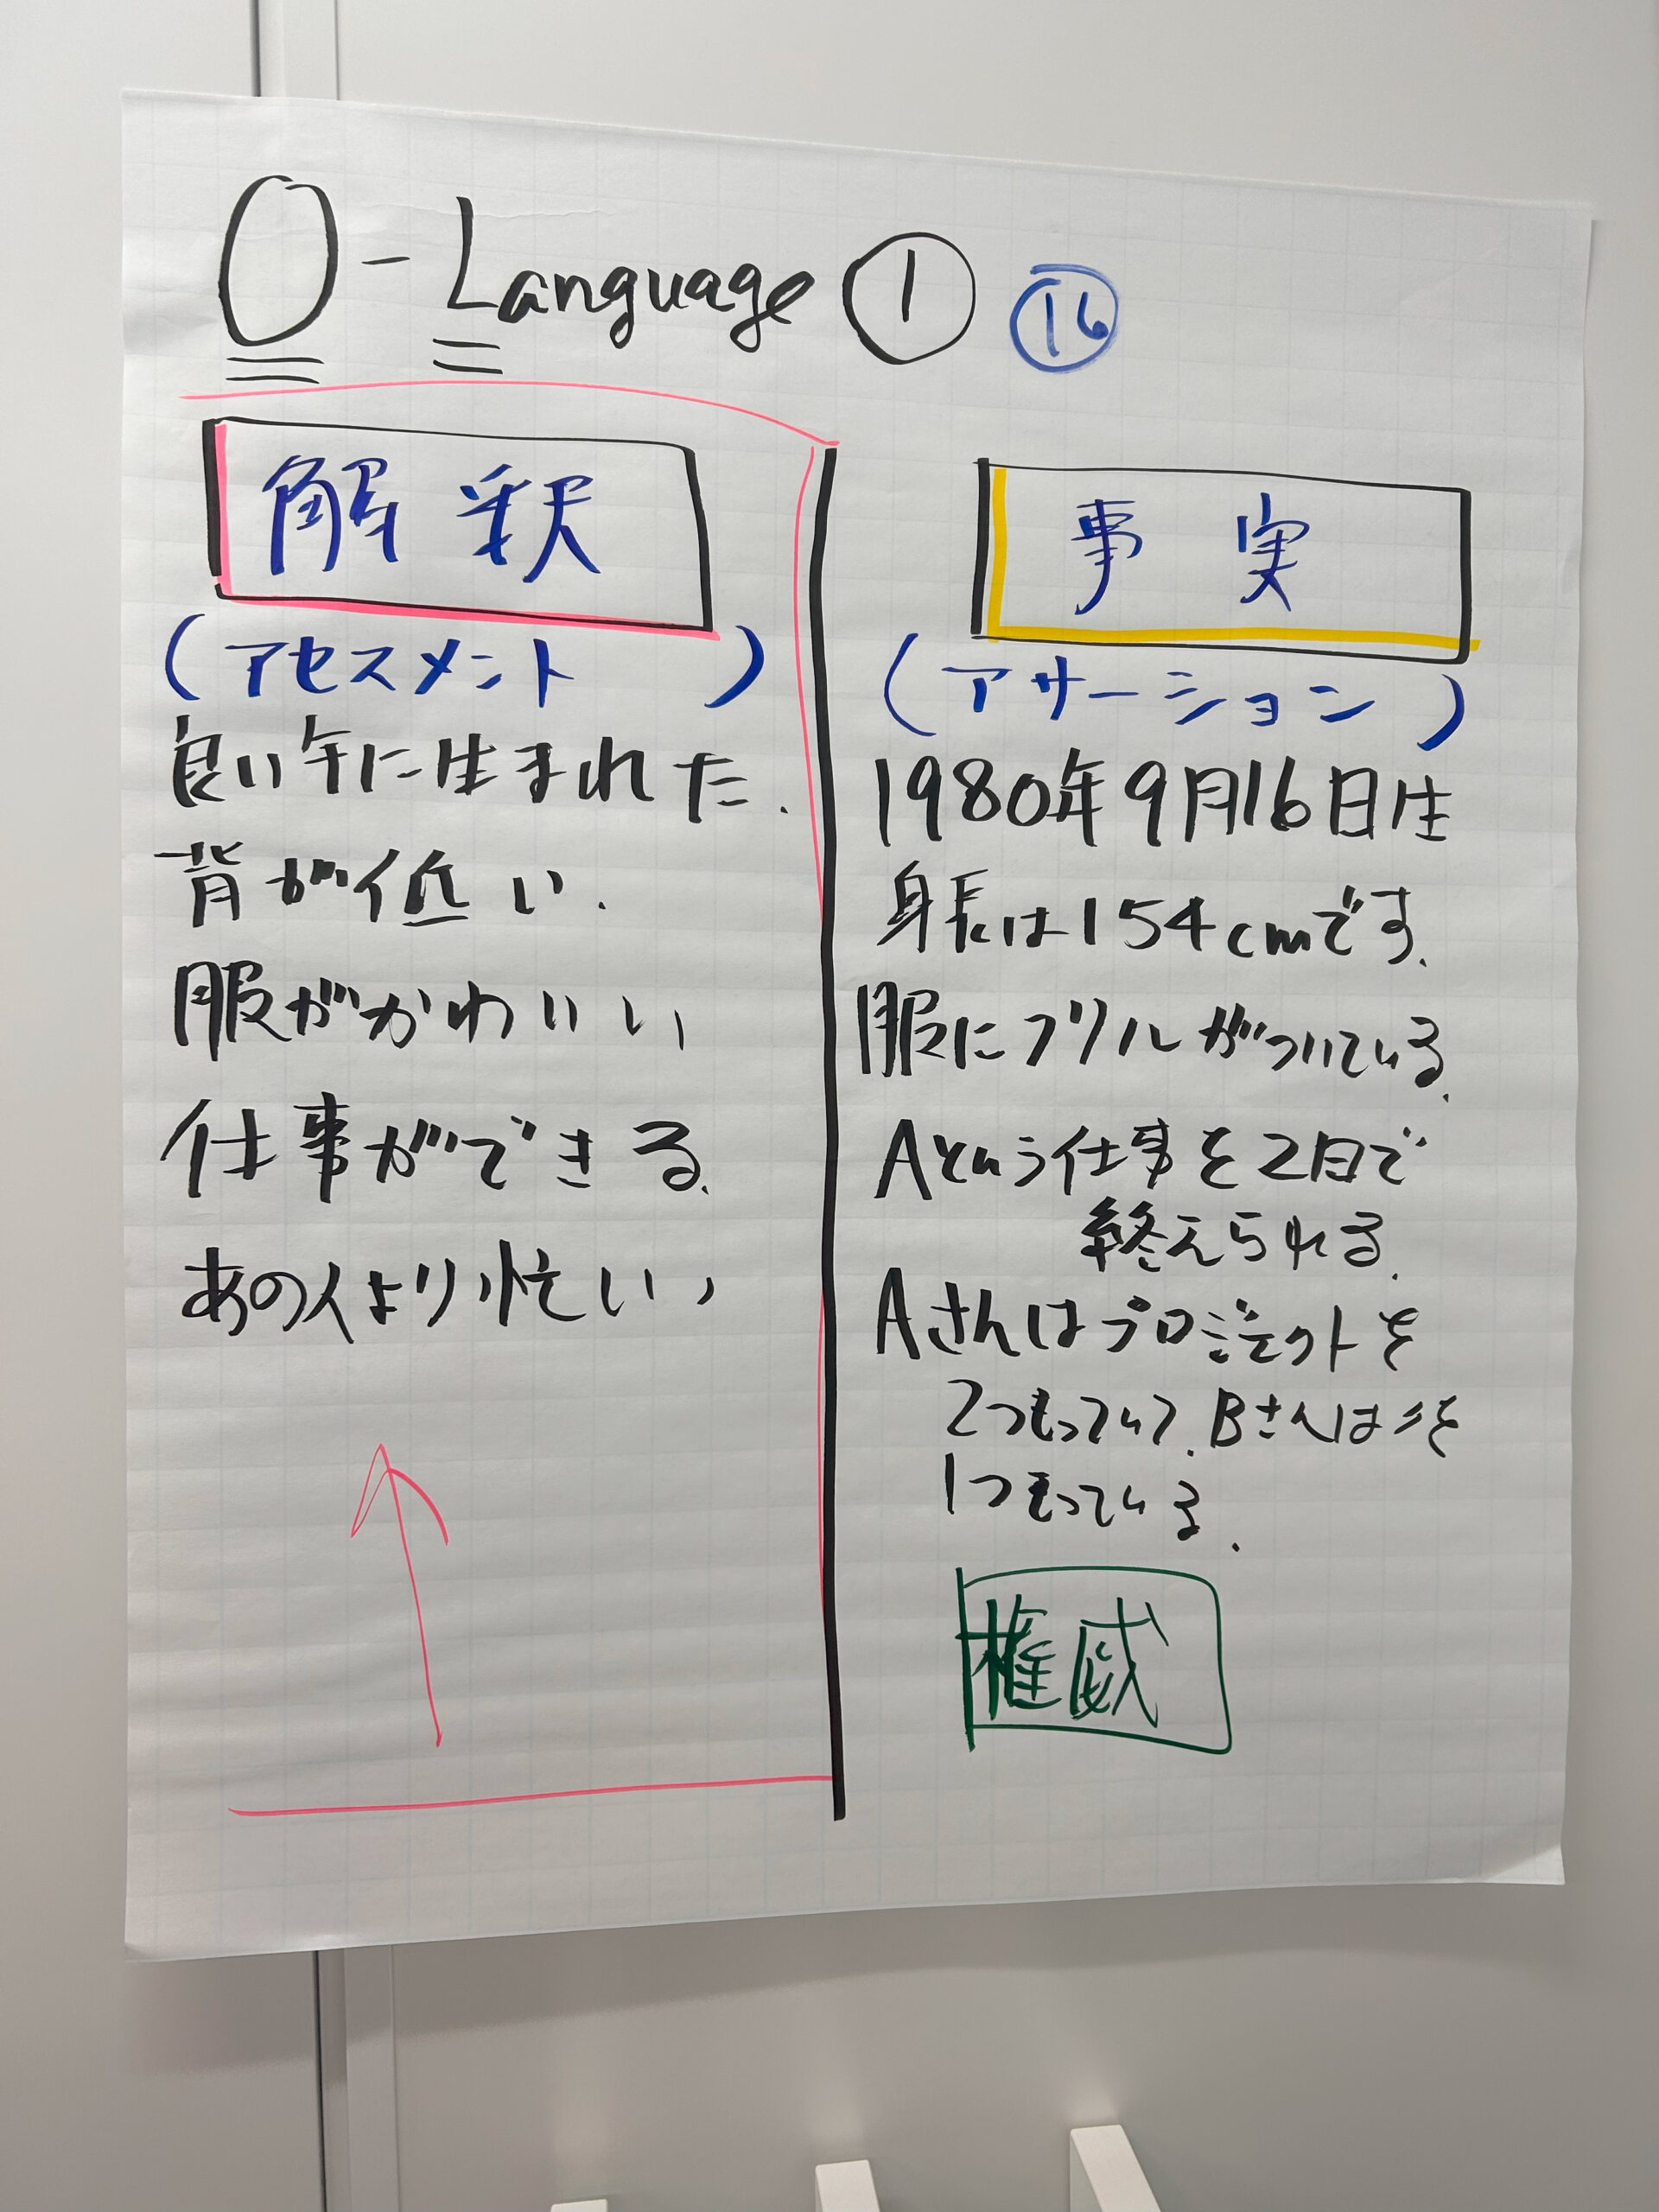 O-Language ① ⑯
解釈
(アセスメント)
良い年に生まれた.
背が低い.
服がかわいい
仕事ができる.
あの人より忙しい、
事実
(アサーション)
1980年9月16日生
身長は154cmです.
服にフリルがついている.
Aという仕事を2日で
終えられる.
Aさんはプロジェクトを
2つもっていて.Bさんは〃を
1つもっている.
権威